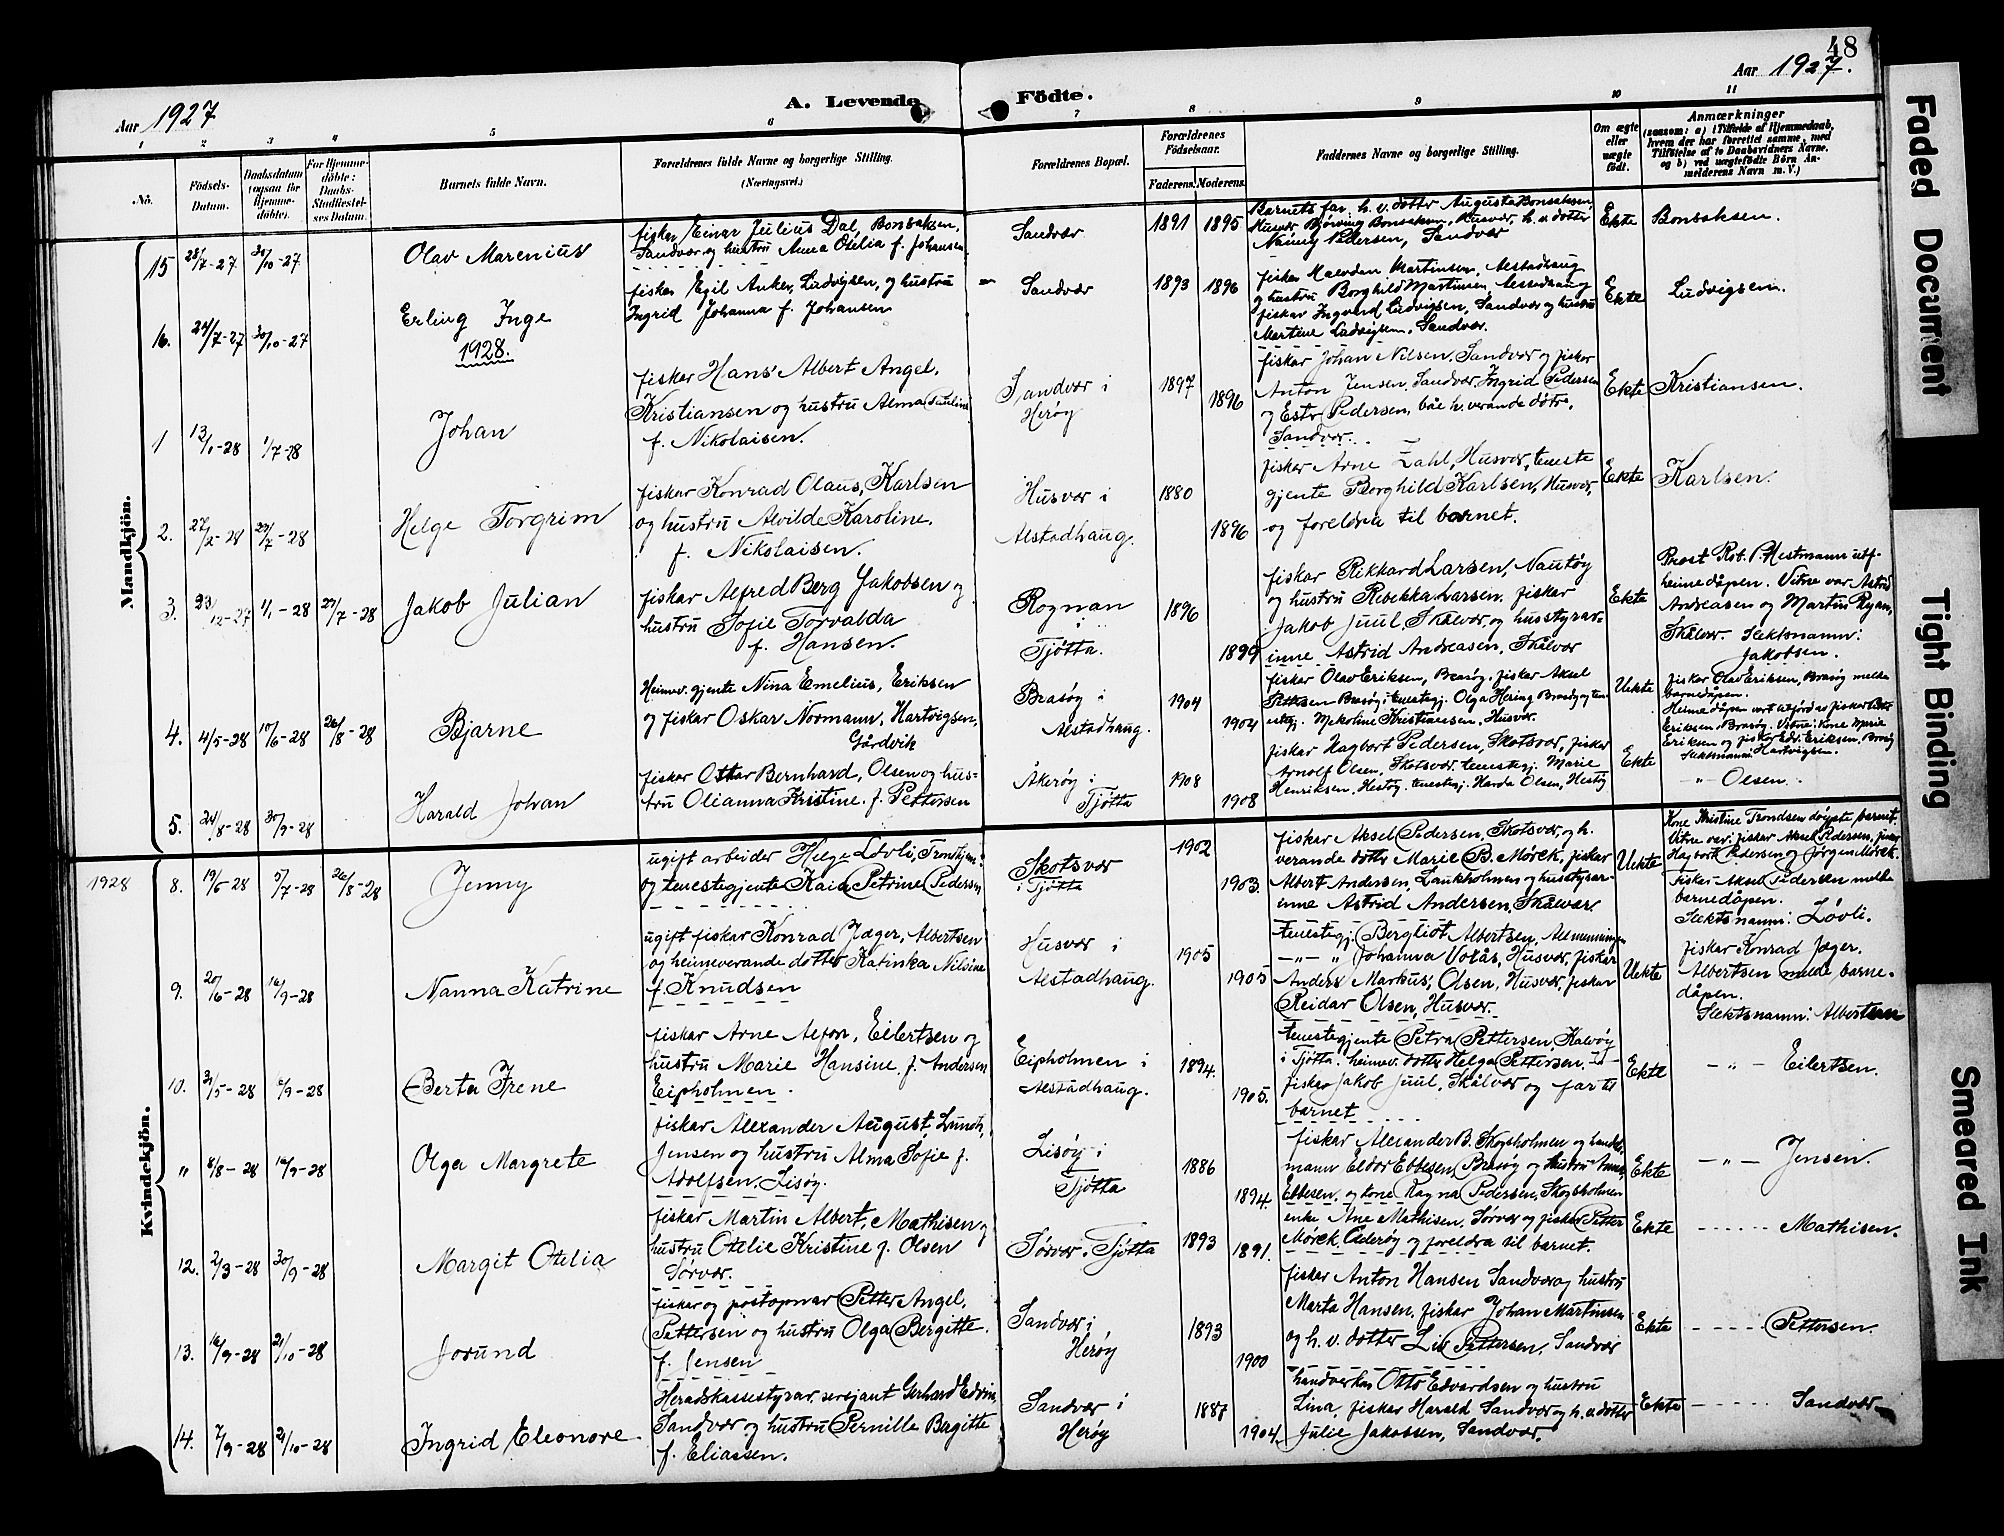 48
Aar 1927
A. Levende Födte.
Aar 1927.
1 2 3 4 5 6 7 8 9 10 11
No.
Födsels-Datum.
Daabsdatum (ogsaa for Hjemme-döbte).
For Hjemme-döbte: Daabs-Stadfæstel-ses Datum.
Barnets fulde Navn.
Forældrenes fulde Navne og borgerlige Stilling.
(Næringsvei.)
Forældrenes Bopæl.
Forældrenes Födselsaar.
Faderens. Moderens.
Faddernes Navne og borgerlige Stilling.
Om ægte eller uægte födt.
Anmærkninger
(saasom: a) i Tilfælde af Hjemmedaab, hvem der har forrettet samme, med Tilföielse af to Daabsvidners Navne, og b) ved uægtefödte Börn An-melderens Navn m. V.)
Mandkjön.
15 28/7-27 30/10-27 Olav Marenius
fisker Einar Julius Dal, Bonsaksen,
Sandvær og hustru Anna Otelia f. Johansen
Sandvær 1891 1895
Barnets far, h. v. dotter Augusta Bonsaksen
Husvær, Bonsaksen, Husvær, h. v. dotter
Pedersen, Sandvær
Ekte Bonsaksen.
16. 24/7-27 30/10-27 Erling Inge
fisker Egil Anker, Ludvigsen, og hustru
Ingrid Johanna f. Johansen
Sandvær 1893 1896
fisker Martinsen, Alstadhaug
og hustru Borghild Martinsen Alstadhaug
fisker Ingvard Ludvigsen, Sandvær og hustru
Martine Ludvigsen, Sandvær.
Ekte Ludvigsen.
1928.
1 13/1-28 1/7-28 Johan
fiskar Hans Albert Angel,
Kristiansen og hustru Alma Pauline
f. Nikolaisen.
Sandvær i Herøy 1897 1896
fiskar Johan Nilsen, Sandvær og fiskar
Anton Jensen, Sandvær, Ingrid Pedersen
og Ester Pedersen, båe h. verande døtre,
Sandvær.
Ekte Kristiansen.
2. 27/2-28 29/7-28 Helge Torgrim
fiskar Konrad Olaus, Karlsen
og hustru Alvilde Karoline,
f. Nikolaisen.
Husvær i Alstadhaug. 1880 1896
fiskar Arne Zahl, Husvær, teneste
gjente Borghild Karlsen, Husvær,
og foreldra til barnet.
Ekte Karlsen.
3. 23/12-27 1/1-28 29/7-28 Jakob Julian
fiskar Alfred Berg Jakobsen og
hustru Sofie Torvalda
f. Hansen.
Rognan i Tjøtta. 1896 1899
fiskar Rikkard Larsen, Nautøy
og hustru Rebekka Larsen, fiskar
Jakob Juul, Skålvær, og husstyrar-
inne Astrid Andreasen, Skålvær
Ekte
Prost Rob. P. Hestmann utf.
heimedåpen. Vitne var Astrid
Andreasen og Martin Ryan,
Skålvær. Slektsnamn:
Jakobsen.
4. 4/5-28 10/6-28 26/8-28 Bjarne
Heimev. gjente Nina Emelius, Eriksen
og fiskar Oskar Normann, Hartvigsen,
Gårdvik
Brasøy i Alstadhaug. 1904 1904
fiskar Olav Eriksen, Brasøy. fiskar Aksel
Pettersen Brasøy, tenestegj. Olga Brasøy og ten
estgj. Mekoline Kristiansen, Husvær.
Uekte
fiskar Olav Eriksen, Brasøy melde
barnedåpen.
Heimedåpen vart utførd av fiskar
Eriksen, Brasøy. Vitne: Kone Marie
Eriksen og fiskar Edv. Eriksen, Brasøy
Slektsnamn: Hartvigsen.
5. 24/8-28 30/9-28 Harald Johan
fiskar Ottar Bernhard, Olsen og hus-
tru Olianna Kristine. f. Pettersen
Åkerøy i Tjøtta 1908 1908
fiskar Hagbart Pedersen, Skotsvær, fiskar
Arnolf Olsen, Skotsvær, tenestegj. Marie
Henriksen, Hestøy. tenestegj. Harda Olsen, Hestøy
Ekte -"- Olsen.
Kvindekjön.
1928 8. 19/6-28 5/7-28 26/8-28 Jenny
ugift arbeider Helge Løvli, Trondhjem
og tenestegjente Kaia Petrine Pedersen
Skotsvær i Tjøtta 1902 1903.
fiskar Aksel Pedersen, Skotsvær, og h.
verande dotter Marie B. Mørck, fiskar
Albert Andersen, Laukholmen og husstyrar-
inne Astrid Andersen, Skålvær.
Uekte
Kone Kristine Trondsen døypte barnet.
Vitne var: fiskar Aksel Pedersen, fiskar
Hagbart Pedersen og Jørgen Mørck.
Fiskar Aksel Pedersen melde
barnedåpen.
Slektsnamn: Løvli.
9. 20/6-28 16/9-28 Nanna Katrine
ugift fiskar Konrad Jæger, Albertsen
og heimeverande dotter Katinka Nilsine
f. Knudsen
Husvær i Alstadhaug. 1905 1905
tenestegj. Bergliot Albertsen, Almenningen
-"- " Johanna Volås, Husvær, fiskar
Anders Markus, Olsen, Husvær, fiskar
Reidar Olsen, Husvær.
Uekte
fiskar Konrad Jæger.
Albertsen melde barne-
dåpen.
Slektsnamn: Albertsen
10. 31/5-28 16/9-28 Berta Irene
fiskar Arne Alfon, Eilertsen og
hustru Marie Hansine f. Andersen
Eipholmen.
Eipholmen i Alstadhaug. 1894. 1905.
tenestegjente Petra Pettersen Kalvøy
i Tjøtta. heimev. dotter Helga Pettersen.
fiskar Jakob Juul, Skålvær og far til
barnet
Ekte -"- Eilertsen.
" 8/8-28 16/9-28 Olga Margrete
fiskar Alexander August Lunch,
Jensen og hustru Alma Sofie f.
Adolfsen, Lisøy.
Lisøy i Tjøtta 1886 1894.
fiskar Alexander B. Skogsholmen og handels
mann Eldor Ebbesen, Brasøy og hustru Anna
Ebbesen, og kone Ragna Pedersen, Skogsholmen
Ekte -"- Jensen.
12. 2/3-28 30/9-28 Margit Otelia
fiskar Martin Albert, Mathisen og
hustru Otelie Kristine f. Olsen
Sørvær.
Sørvær i Tjøtta 1893 1891.
enke Ane Mathisen, Sørvær og fiskar Petter
Mørck, og foreldra til barnet.
Ekte Mathisen.
13. 16/9-28 21/10-28 Jorund
fiskar og postopnar Petter Angel,
Pettersen og hustru Olga Bergitte.
f. Jensen
Sandvær i Herøy 1893 1900
fiskar Anton Hansen Sandvær og hustru
Marta Hansen, fiskar Johan Martinsen
og h. v. dotter Liv Pettersen, Sandvær
Ekte Pettersen.
14. 7/9-28 21/10-28 Ingrid Eleonore.
Heradskassestyrar, sersjant Gerhard Edvin,
Sandvær og hustru Pernille Bergitte
f. Eliassen.
Sandvær i Herøy 1887 1904.
handverkar Otto Edvardsen og hustru
Lina, fiskar Harald Sandvær og h. v. dotter
Julie Jakobsen, Sandvær.
Ekte Sandvær
Faded Document
Tight Binding
Smeared Ink